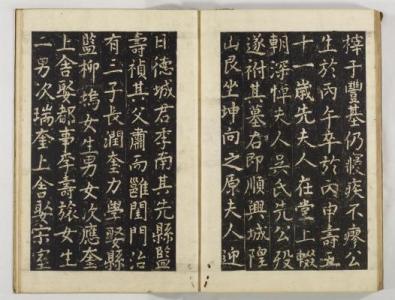 子豐基仍寢疾不瘳公
生於丙午卒於丙申壽五
十一歲先夫人在堂上輟
朝深悼夫人吳氏先公歿
遂祔其墓右即順興城隍
山艮坐坤向之原夫人迎
日德城君李南其先縣監
壽禎其父肅而雝閨門治
有三子長潤奎力學娶縣
監柳塢女生男女次應奎
上舍娶都事李壽旅女生
二男次瑞奎上舍娶宗室